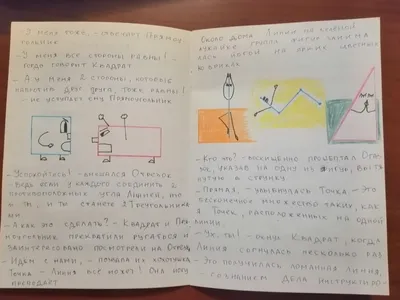 - У меня тоже, - отвечает Прямоу-
гольник.
- У меня все стороны равны! -
гордо говорит Квадрат.
- А у меня 2 стороны, которые
напротив друг друга, тоже равны!
- не уступает ему Прямоугольник
- Успокойтесь! - вмешался Отрезок
- Ведь если у каждого соединить 2
противоположных угла Линией, то
и ты, и ты станете Треугольника
ми
- А как это сделать? - Квадрат и Пря
моугольник прекратили ругаться и
заинтересованно посмотрели на Отрезок.
- Идём с нами, - позвала их хохотушка
Точка - Линия всё может! Она могу
преодает
Около дома Линии на зелёной
лужайке группа фигур занима
лась йогой на ярких цветных
ковриках
- Кто это? - восхищённо прошептал Отре
зок, указав на одну из фигур, вытя
нутую в струнку.
- Прямая, - улыбнулась Точка. - Это
бесконечное множество таких, как
я Точек, расположенных на одной
линии.
- Ух ты! - охнул Квадрат, когда
линия согнулась несколько раз
- Это получилась ломаная линия,
- с знанием дела